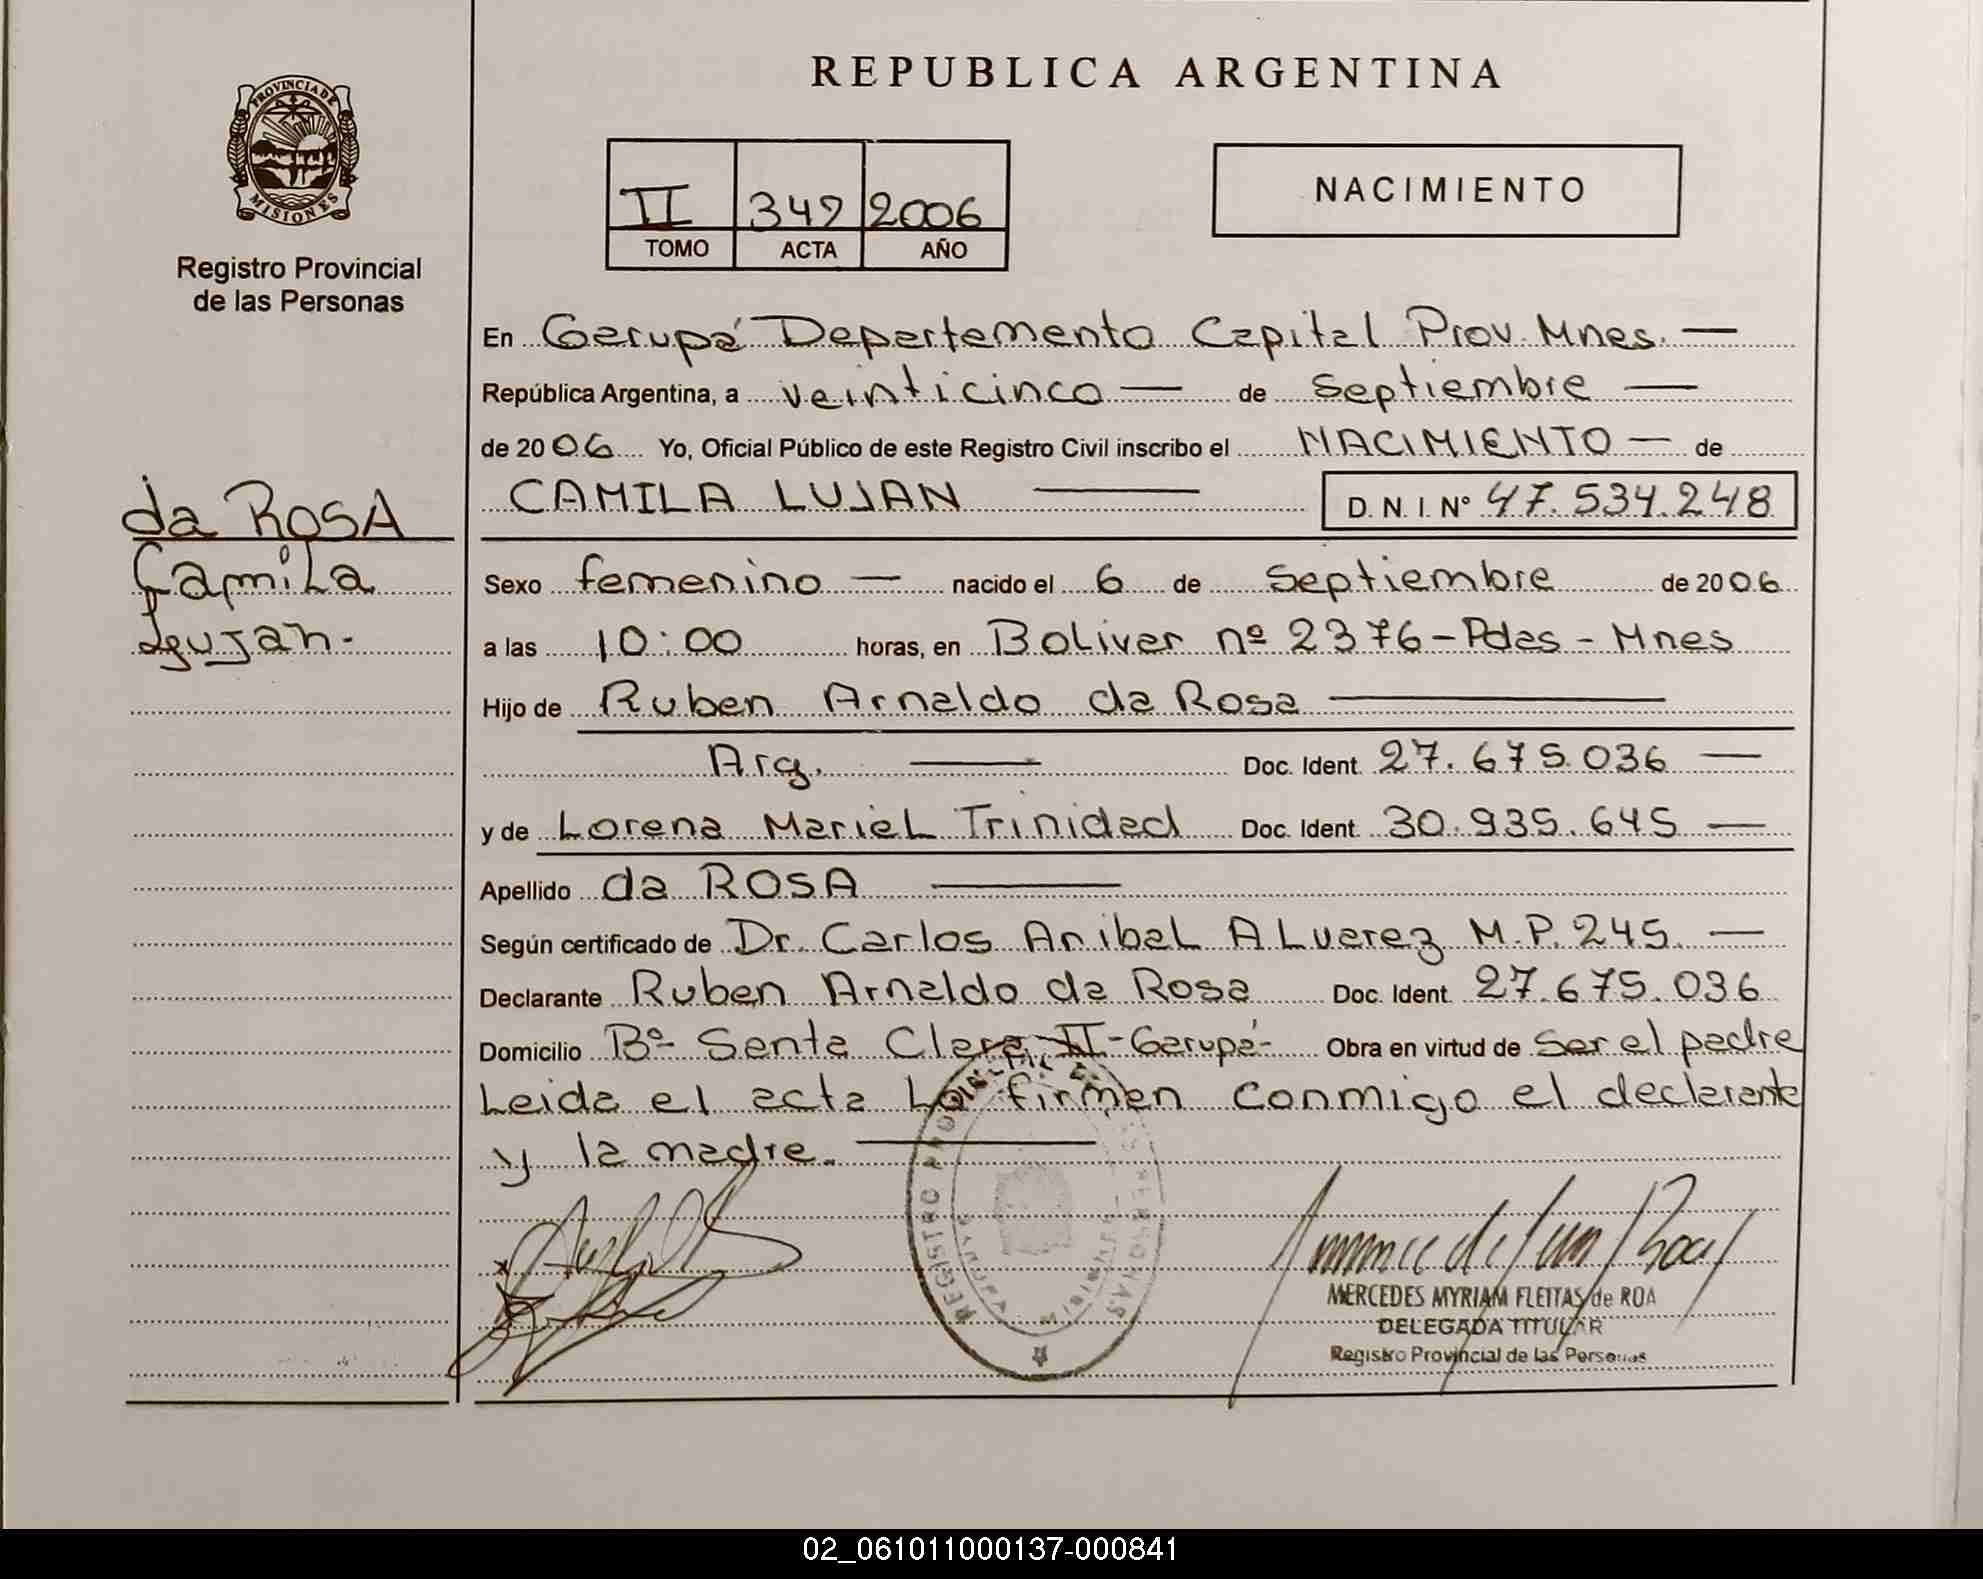 PROVINCIA DE
MISIONES
Registro Provincial
de las Personas
da ROSA
Camila
Lujan.-
REPUBLICA ARGENTINA
II 349 2006
TOMO ACTA AÑO
NACIMIENTO
En Garupá Departamento Capital Prov. Mnes. —
República Argentina, a veinticinco — de Septiembre —
de 2006 Yo, Oficial Público de este Registro Civil inscribo el NACIMIENTO — de
CAMILA LUJAN — D. N. I. Nº 47.534.248
Sexo femenino — nacido el 6 de Septiembre de 2006
a las 10:00 horas, en Bolivar nº 2376-Pdas - Mnes
Hijo de Ruben Arnaldo da Rosa —
Arg. — Doc. Ident. 27.675.036 —
y de Lorena Mariel Trinidad Doc. Ident. 30.935.645 —
Apellido da ROSA —
Según certificado de Dr. Carlos Anibal Alvarez M.P. 245. —
Declarante Ruben Arnaldo da Rosa Doc. Ident. 27.675.036
Domicilio Bº Santa Clara II-Garupá- Obra en virtud de Ser el padre
Leida el acta La firman conmigo el declarante
y la madre. —
REGISTRO PROVINCIAL DE LAS PERSONAS
MERCEDES MYRIAM FLEITAS de ROA
DELEGADA TITULAR
Registro Provincial de las Personas
02_061011000137-000841